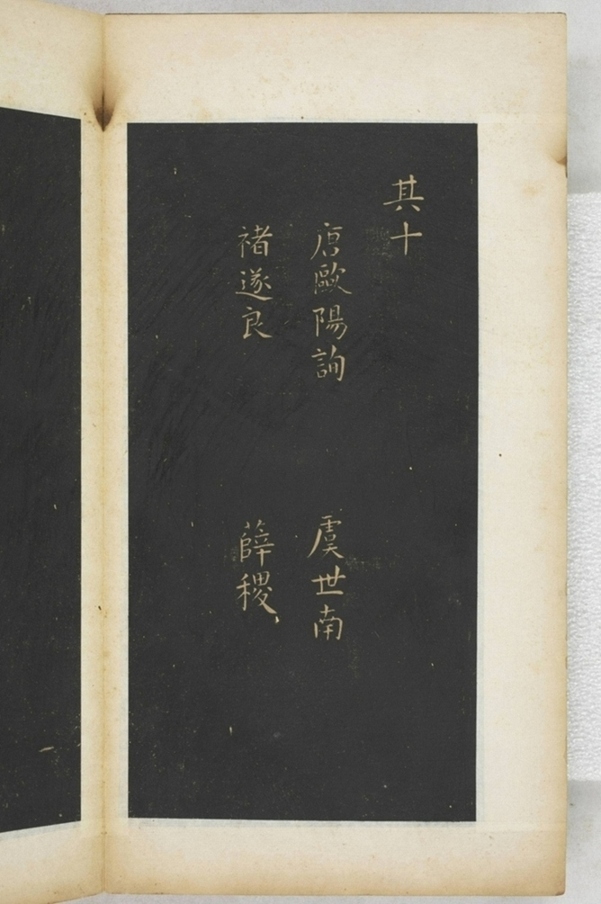 其十
唐歐陽詢 虞世南
褚遂良 薛稷